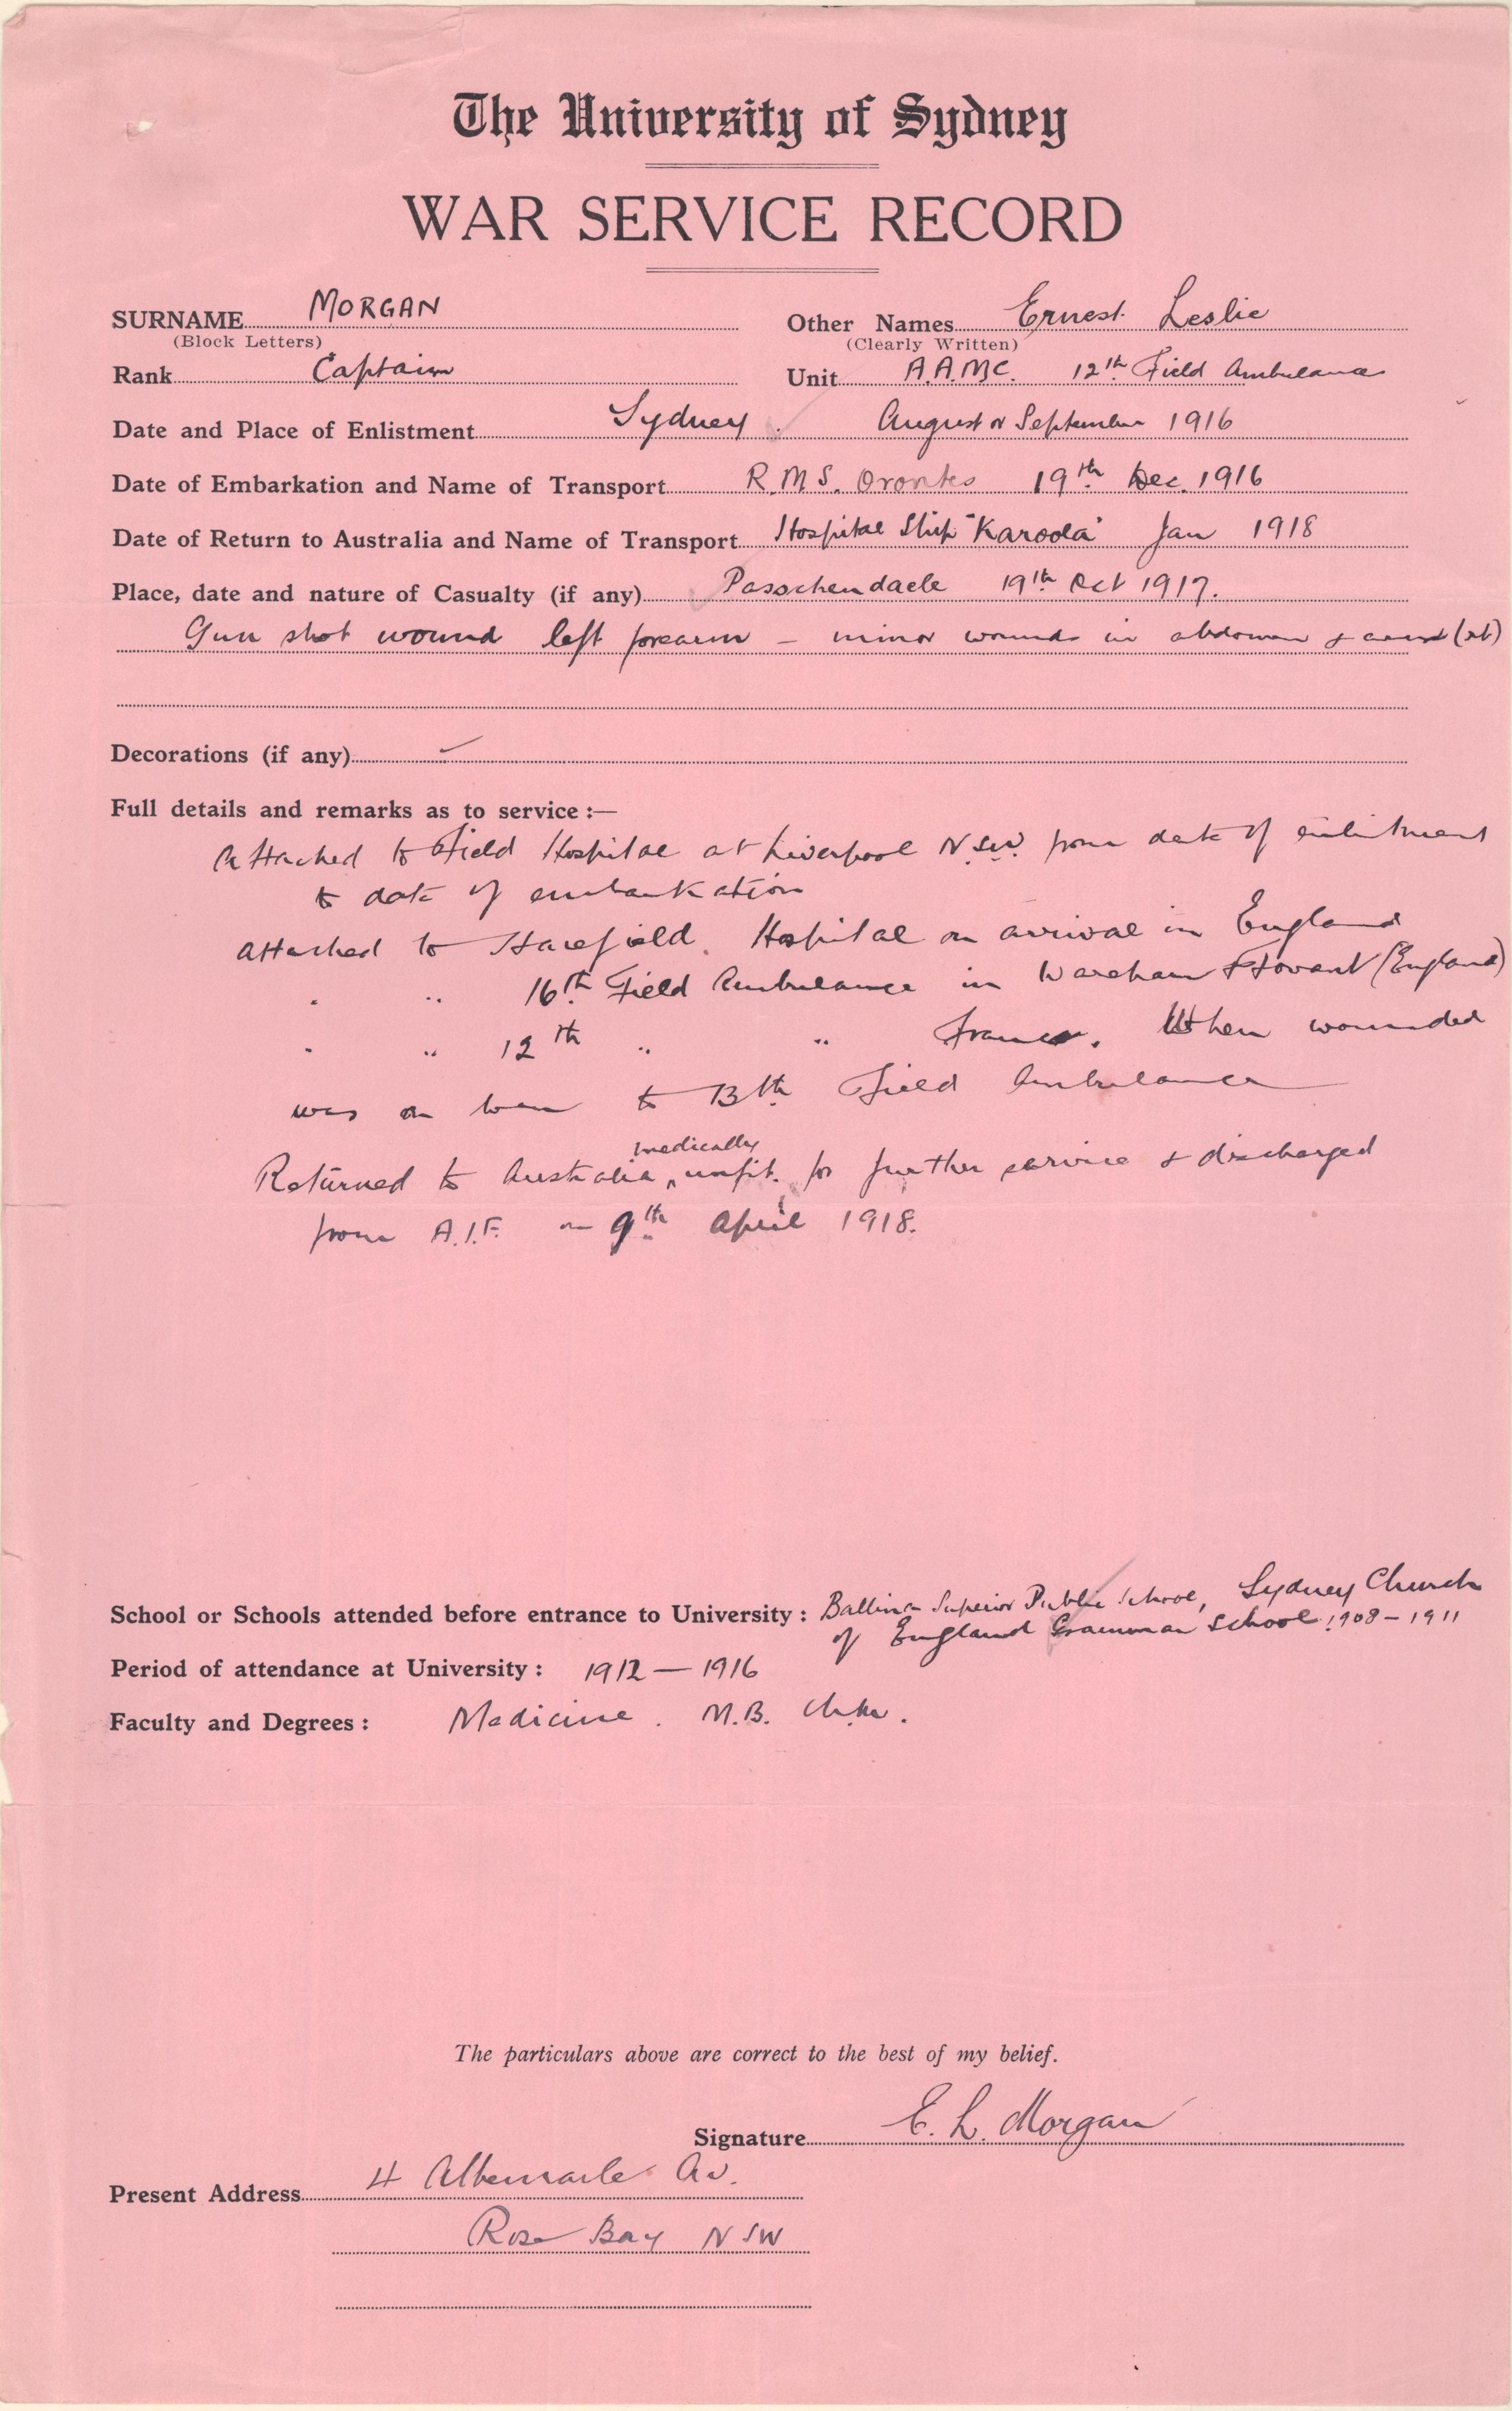 The University of Sydney
WAR SERVICE RECORD
SURNAME MORGAN Other Names Ernest Leslie
(Block Letters) (Clearly Written)
Rank Captain Unit A.A.M.C. 12th Field Ambulance
Date and Place of Enlistment Sydney. August or September 1916
Date of Embarkation and Name of Transport R.M.S. Orontes 19th Dec. 1916
Date of Return to Australia and Name of Transport Hospital Ship "Karoola" Jan 1918
Place, date and nature of Casualty (if any) Passchendaele 19th Oct 1917.
Gun shot wound left forearm - minor wounds in abdomen &
Decorations (if any)
Full details and remarks as to service :—
Attached to Field Hospital at Liverpool N.S.W. from date of enlistment
to date of embarkation
Attached to Harefield Hospital on arrival in England
" " 16th Field Ambulance in Wareham & Hovant (England)
" " 12th " " France. When wounded
was on loan to 13th Field Ambulance
medically
Returned to Australia ‸ unfit for further service & discharged
from A.I.F. on 9th April 1918.
School or Schools attended before entrance to University : Ballina Superior Public School, Sydney Church
of England Grammar School 1908 - 1911
Period of attendance at University : 1912 — 1916
Faculty and Degrees : Medicine. M.B. Ch.M.
The particulars above are correct to the best of my belief.
Signature E. L. Morgan
Present Address 4 Albemarle Av.
Rose Bay NSW